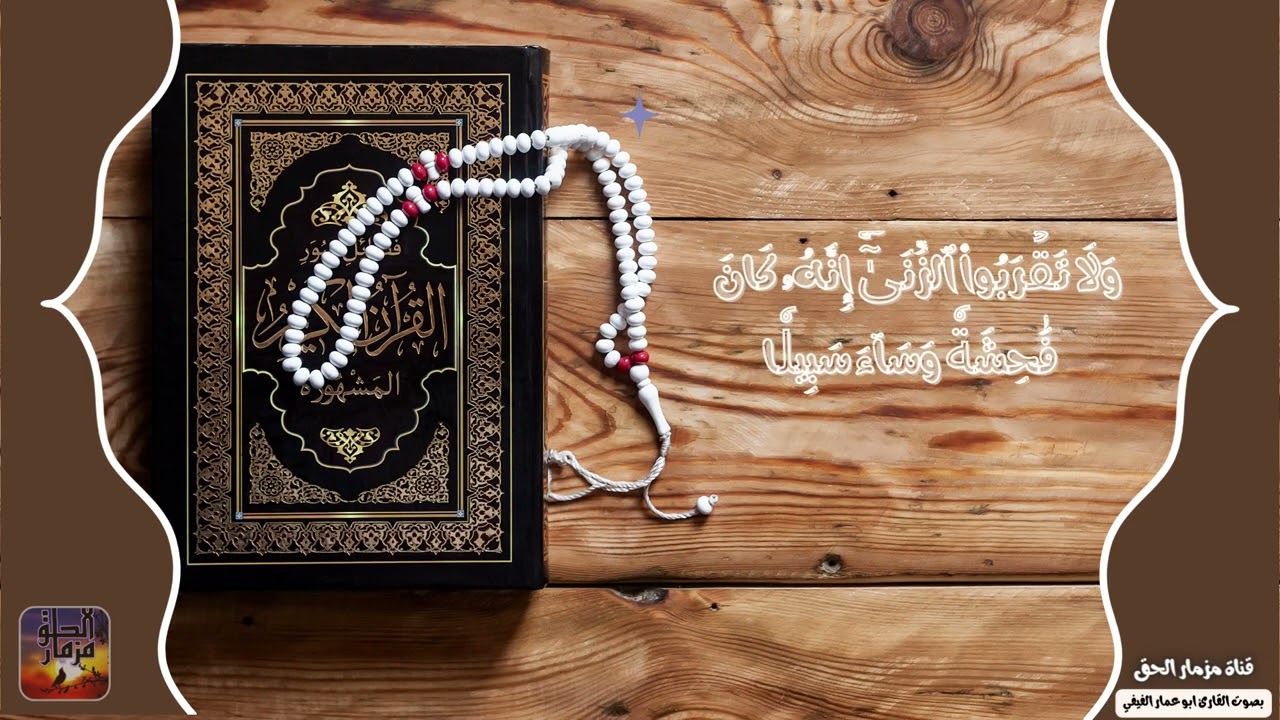 وَلَا تَقْرَبُوا۟ ٱلزِّنَىٰٓ إِنَّهُۥ كَانَ
فَٰحِشَةً وَسَآءَ سَبِيلًا
القرآن
المشهورة
الحلق
مزمار
قناة مزمار الحق
بصوت القارئ ابو عمار الفيفي